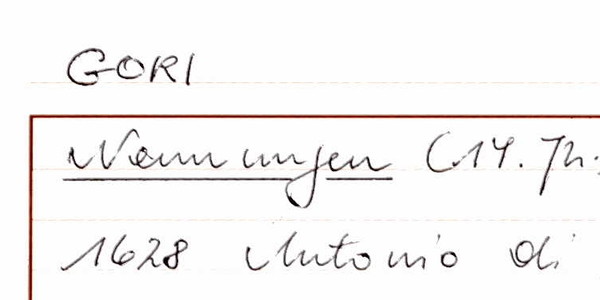 GORI
Nennungen (14. Jh.
1628 Antonio di